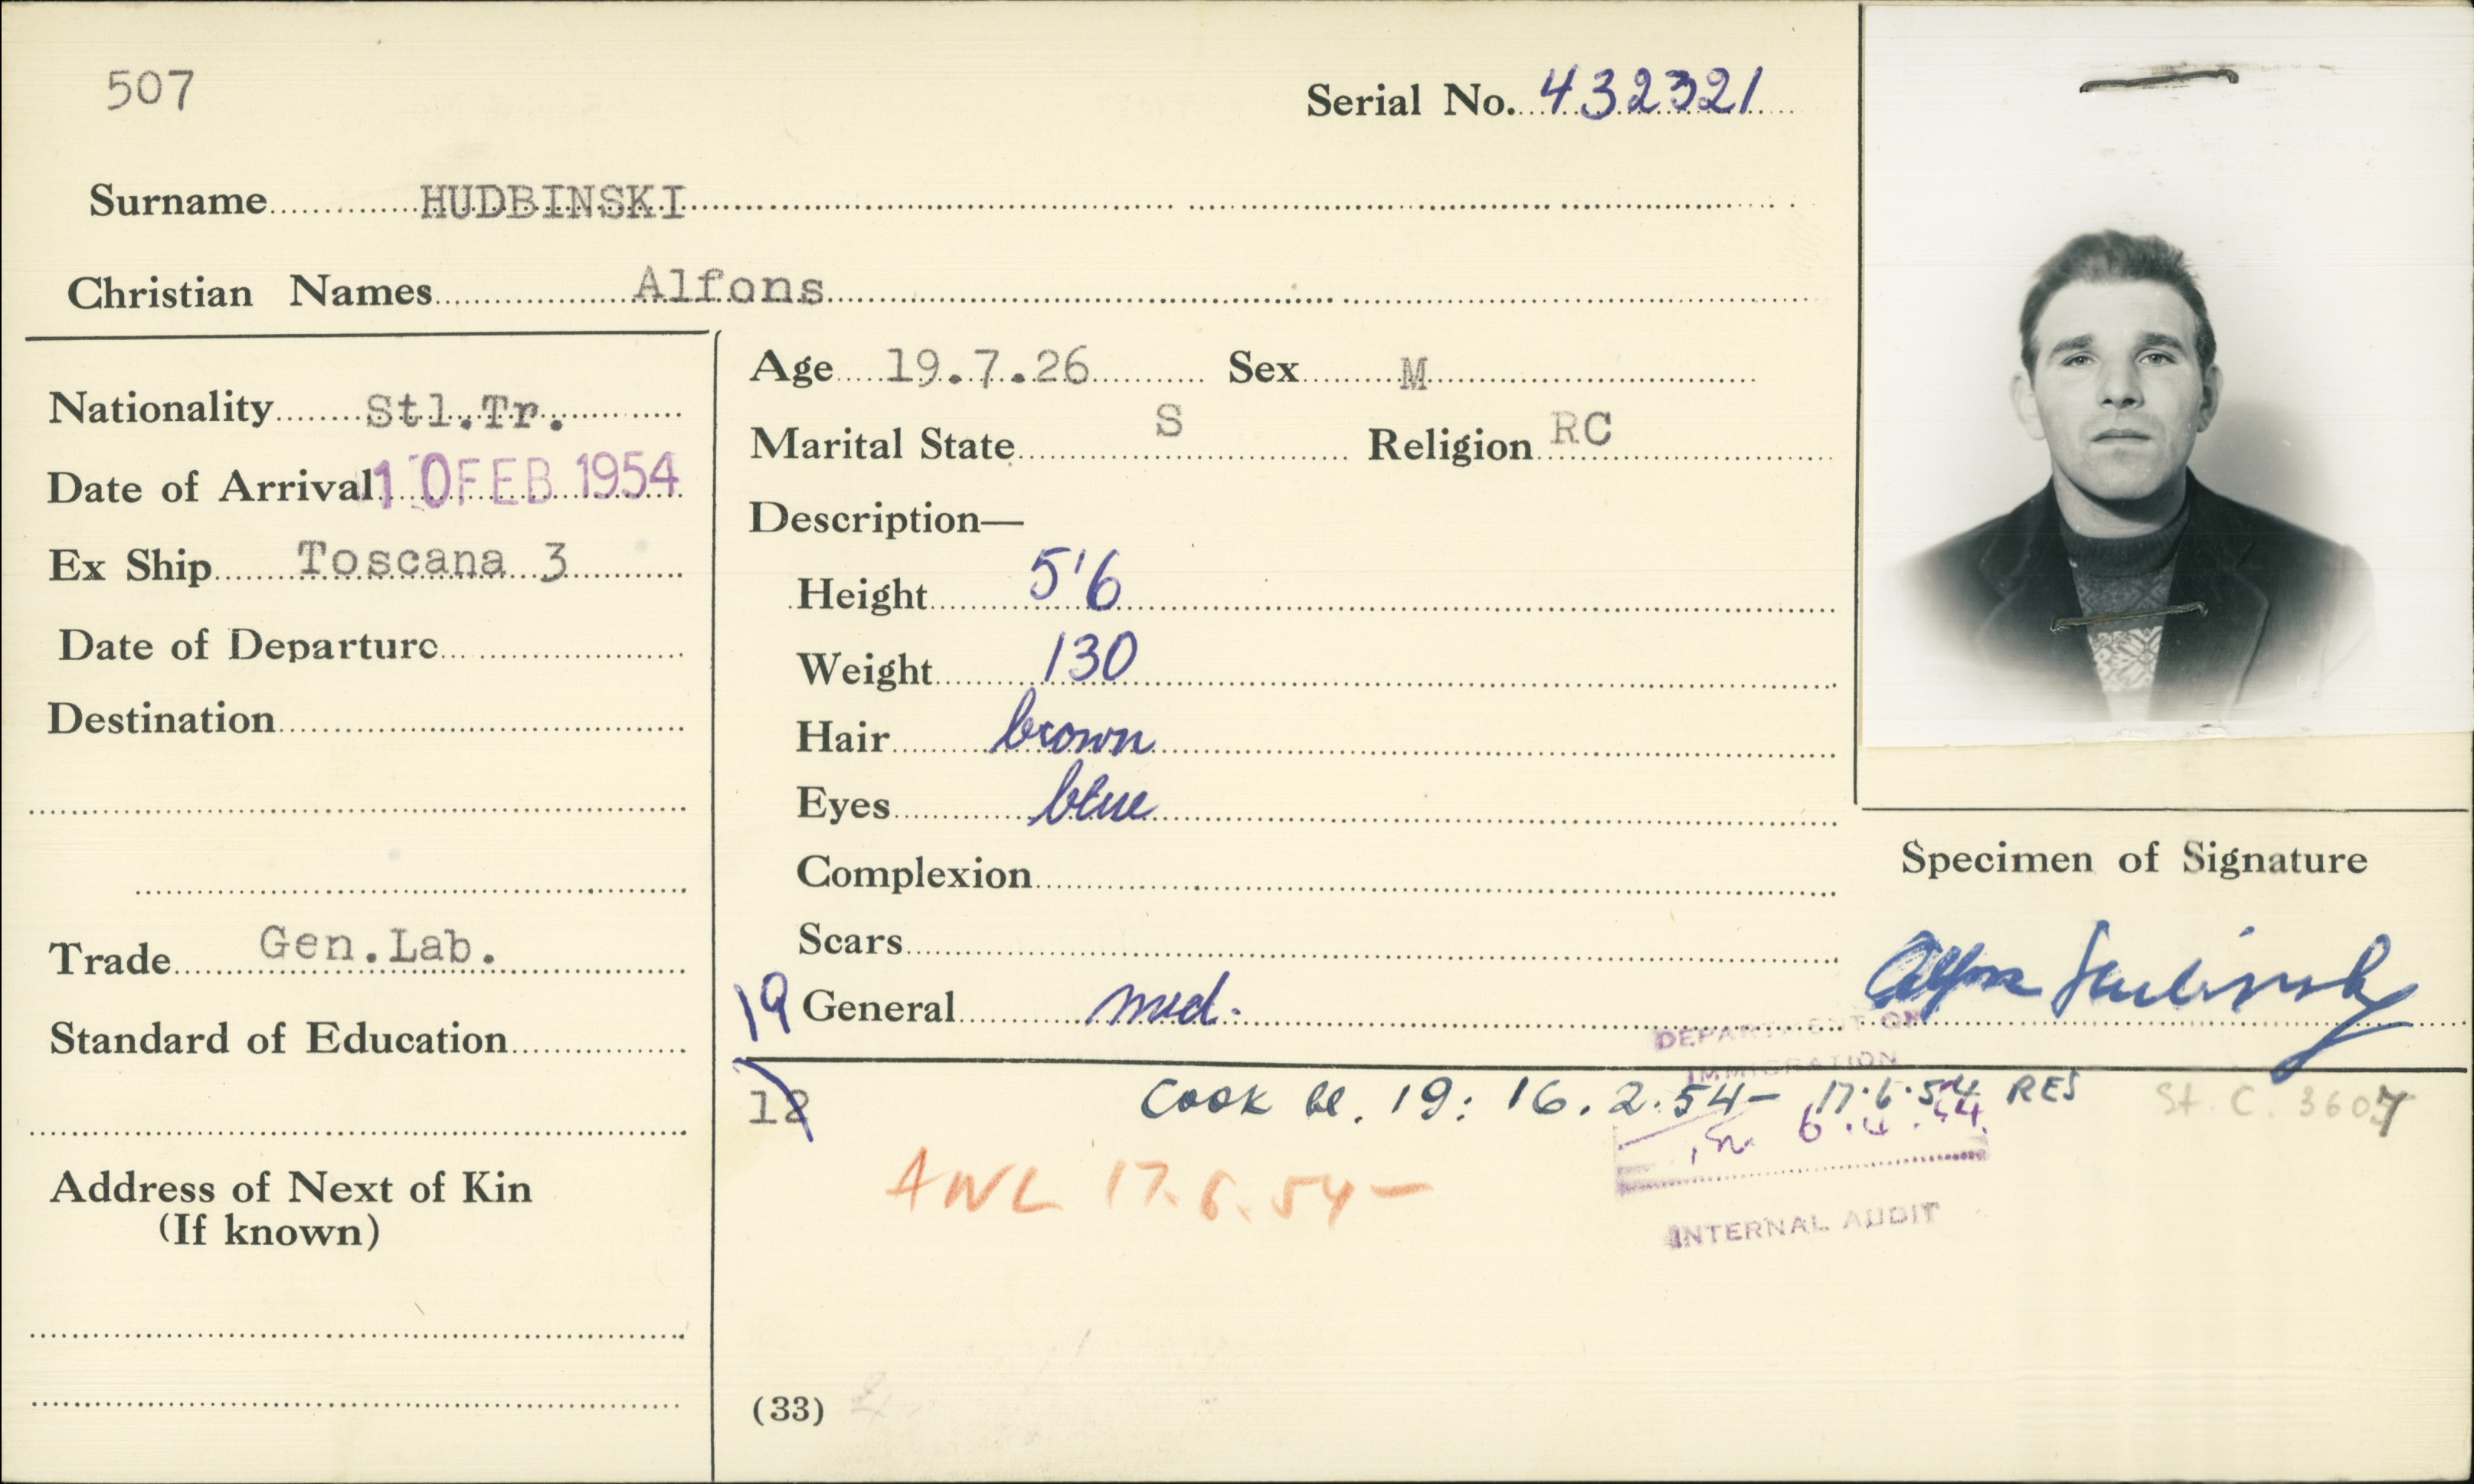 507
Serial No. 432321
Surname HUDBINSKI
Christian Names Alfons
Nationality Stl.Tr.
Date of Arrival 10 FEB 1954
Ex Ship Toscana 3
Date of Departure
Destination
Trade Gen.Lab.
Standard of Education
Address of Next of Kin
(If known)
Age 19.7.26 Sex M
Marital State S Religion RC
Description—
Height 5'6
Weight 130
Hair brown
Eyes blue
Complexion
Scars
19 General med.
12
Cook bl. 19: 16.2.54- 17.6.54 RES
St. C. 3607
AWL 17.6.54-
DEPARTMENT OF
IMMIGRATION
INTERNAL AUDIT
(33)
Specimen of Signature